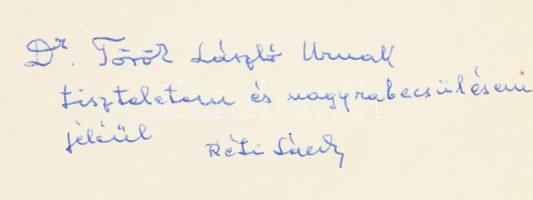 Dr. Török László Urnak
tiszteletem és nagyrabecsülésem
jeléül
Réti